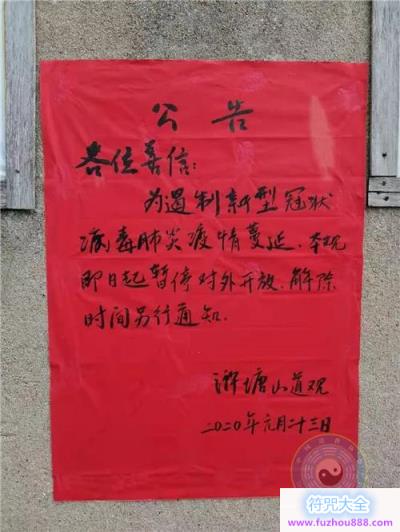 公告
各位善信:
为遏制新型冠状
病毒肺炎疫情蔓延,本观
即日起暂停对外开放,解除
时间另行通知。
塘山道观
2020年元月二十三日
符咒大全
www.fuzhou888.com